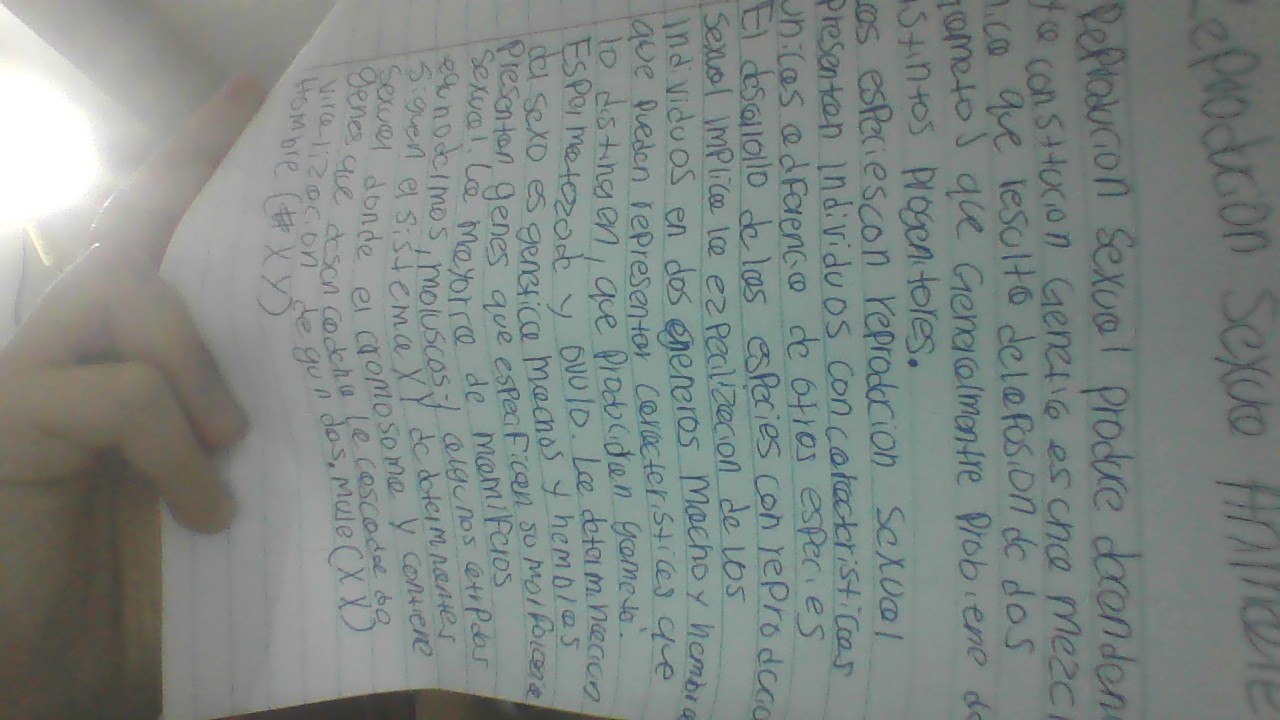 eproducion Sexua Animale
Reproducion Sexual produce decendem
constitucion Genetia es cna mezcl
ica que resulta de lafosion de dos
gametos que Gencialmentre probiene de
istintos progenitores.
as especies con reproducion Sexual
presentan individuos con catacteristicas
unicas a diferencia de otras especies
El desarollo de las especies con reproducio
sexual implica la ezpecalizacion de los
Individuos en dos generos macho y hembra
que pueden representar caracteristicas que
lo distinguen, que producidan gameto.
Espermatozod y ovulo. La determinacion
da sexo es genetica machos y hembras
Presentan genes que especifican su morfologia
sexual. La mayoria de mamiferos
equinodermos, moluscos y algunos
siguen el sistema XY de determinantes
Sexual donde el cromosoma y contiene
genes que desencadena la cascada de
virilizacion de gun das. mule (XX)
Hombre (# XY)